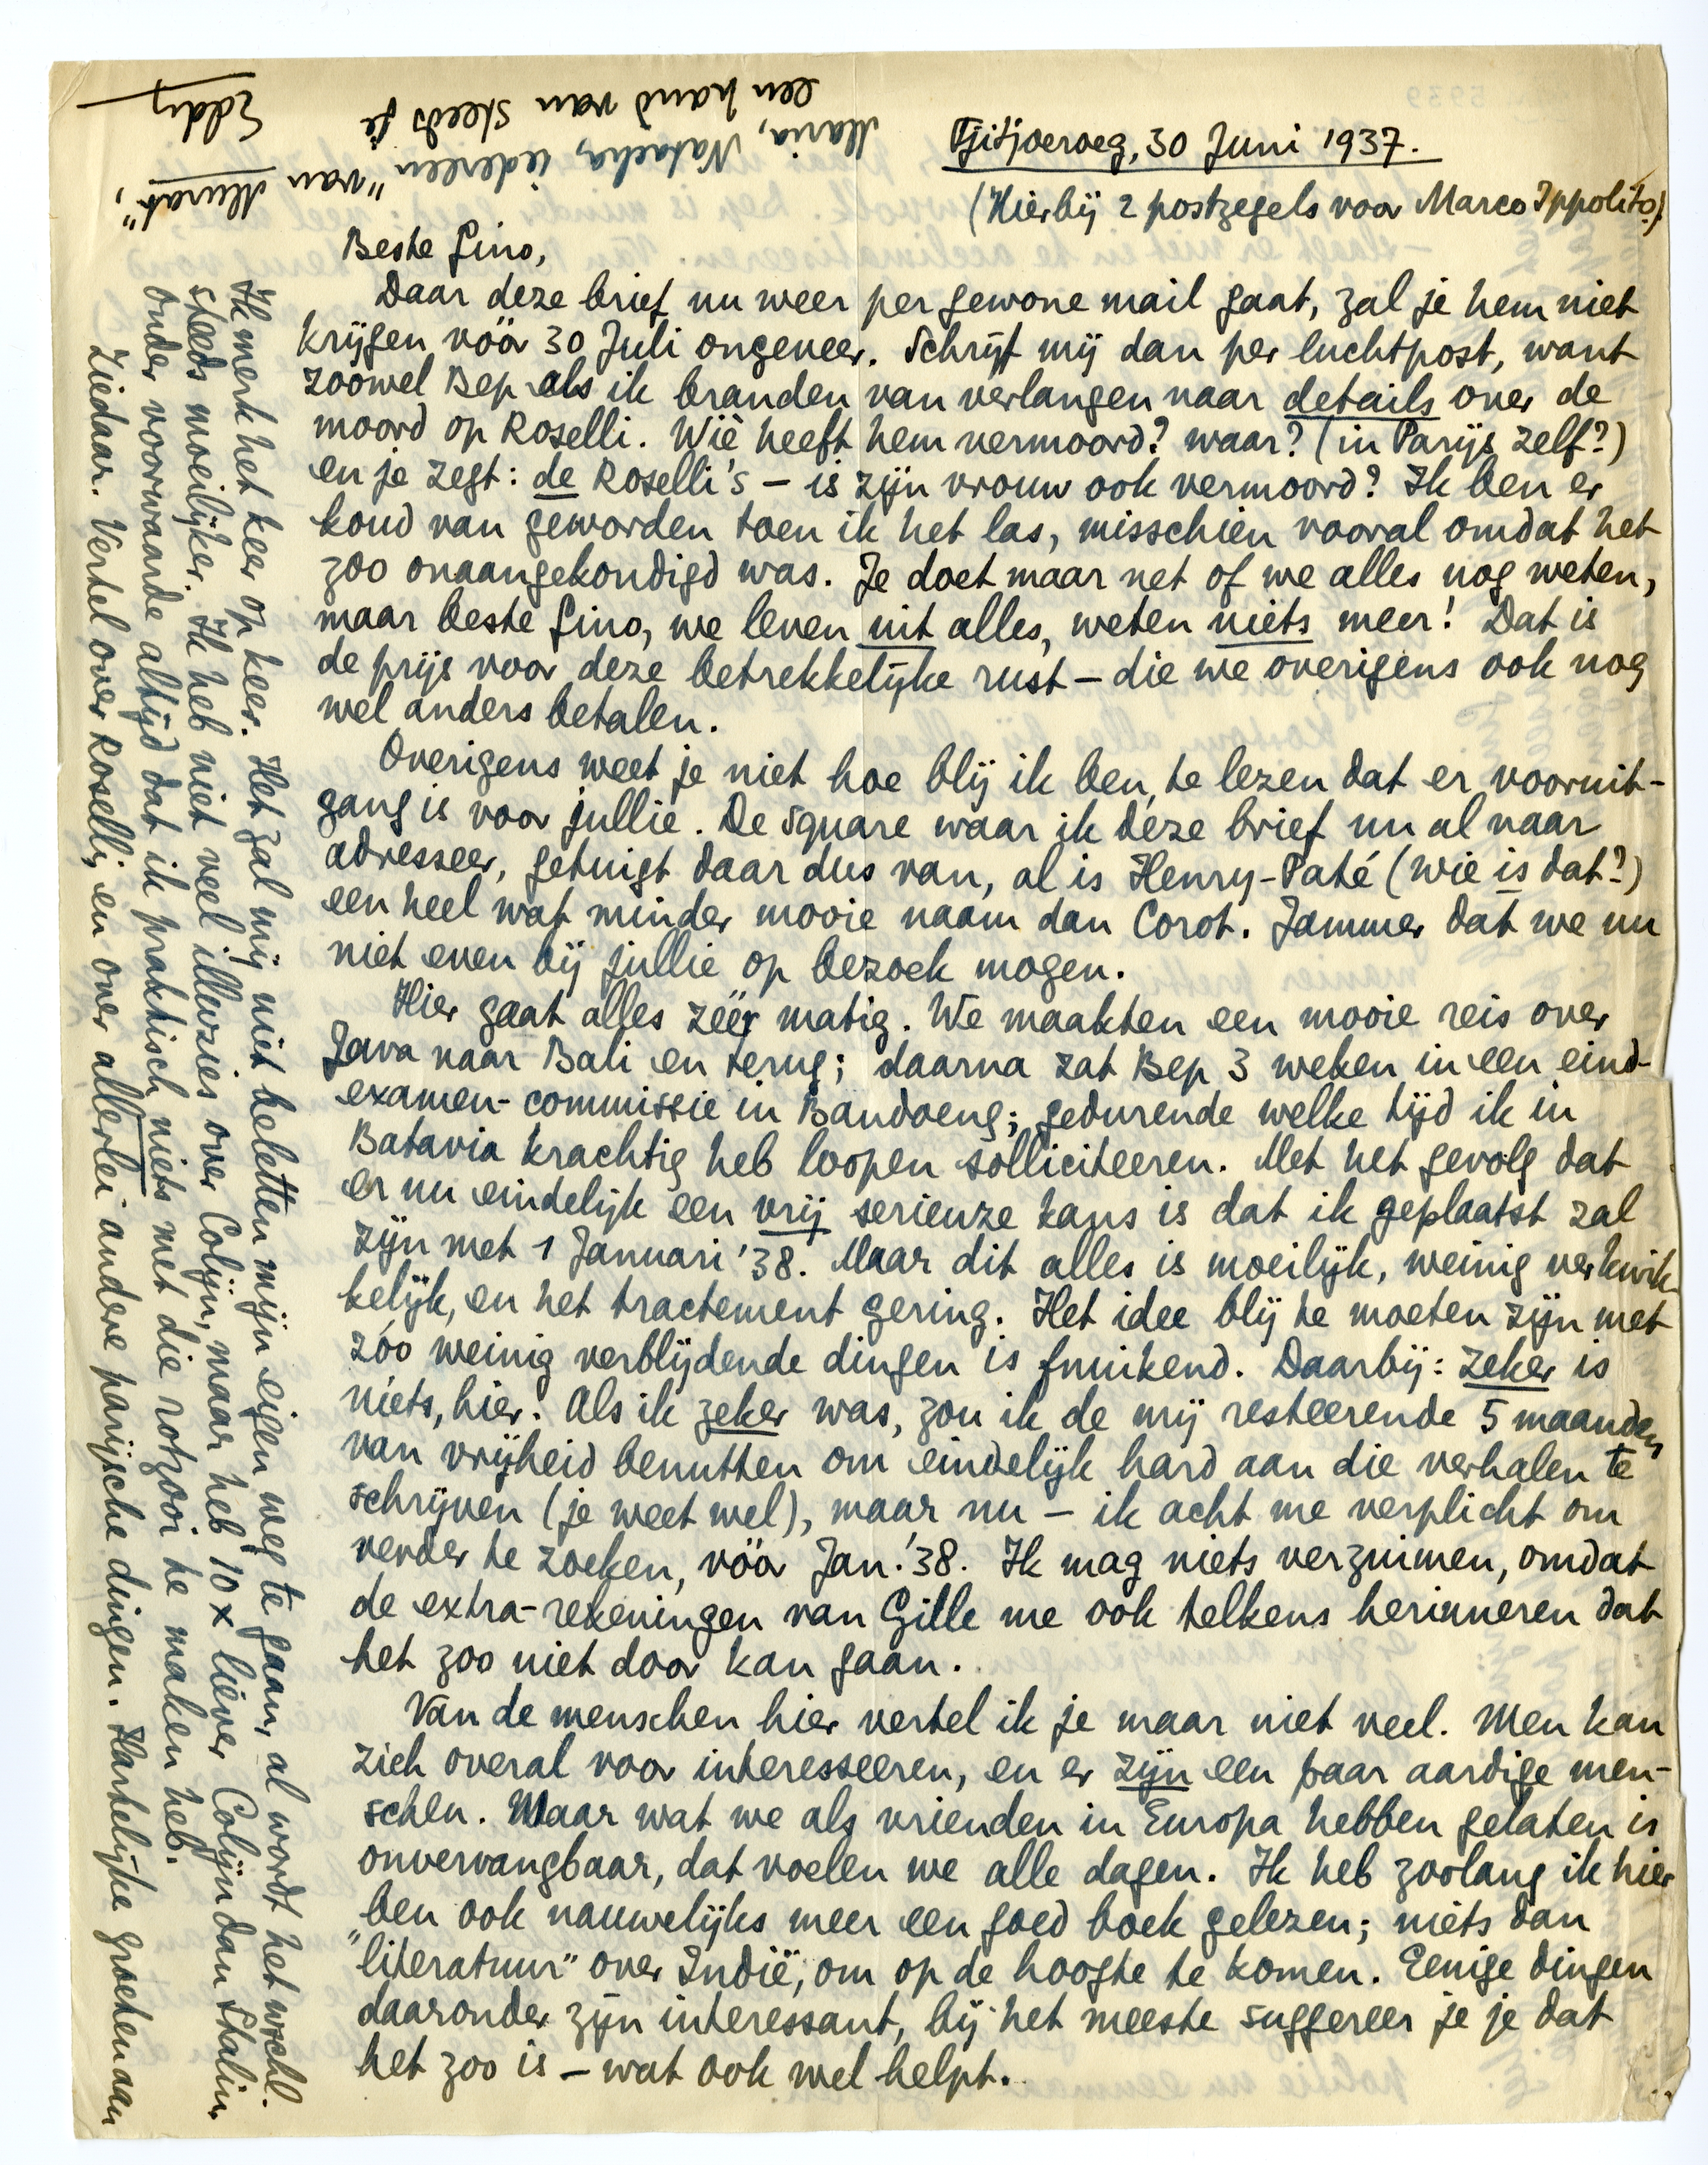 Tjitjoeroeg, 30 Juni 1937.
(Hierbij 2 postzegels voor Marco Ippolito.)
Beste Gino,
Daar deze brief nu weer per gewone mail gaat, zal je hem niet
krijgen vóór 30 Juli ongeveer. Schrijf mij dan per luchtpost, want
zoowel Bep als ik branden van verlangen naar details over de
moord op Roselli. Wiè heeft hem vermoord? waar? (in Parijs zelf?)
en je zegt: de Roselli's – is zijn vrouw ook vermoord? Ik ben er
koud van geworden toen ik het las, misschien vooral omdat het
zoo onaangekondigd was. Je doet maar net of we alles nog weten,
maar beste Gino, we leven uit alles, weten niets meer! Dat is
de prijs voor deze betrekkelijke rust – die we overigens ook nog
wel anders betalen.
Overigens weet je niet hoe blij ik ben, te lezen dat er vooruit-
gang is voor jullie. De Square waar ik deze brief nu al naar
adresseer, getuigt daar dus van, al is Henry-Paté (wie is dat?)
een heel wat minder mooie naam dan Corot. Jammer dat we nu
niet even bij jullie op bezoek mogen.
Hier gaat alles zéér matig. We maakten een mooie reis over
Java naar Bali en terug; daarna zat Bep 3 weken in een eind-
examen-commissie in Bandoeng; gedurende welke tijd ik in
Batavia krachtig heb loopen solliciteeren. Met het gevolg dat
er nu eindelijk een vrij serieuze kans is dat ik geplaatst zal
zijn met 1 Januari '38. Maar dit alles is moeilijk, weinig verkwik-
kelijk, en het tractement gering. Het idee blij te moeten zijn met
zóo weinig verblijdende dingen is fnuikend. Daarbij: zeker is
niets, hier! Als ik zeker was, zou ik de mij resteerende 5 maanden
van vrijheid benutten om eindelijk hard aan die verhalen te
schrijven (je weet wel), maar nu – ik acht me verplicht om
verder te zoeken, vóór Jan. '38. Ik mag niets verzuimen, omdat
de extra-rekeningen van Gille me ook telkens herinneren dat
het zoo niet door kan gaan.
Van de menschen hier vertel ik je maar niet veel. Men kan
zich overal voor interesseeren, en er zijn een paar aardige men-
schen. Maar wat we als vrienden in Europa hebben gelaten is
onvervangbaar, dat voelen we alle dagen. Ik heb zoolang ik hier
ben ook nauwelijks meer een goed boek gelezen; niets dan
"literatuur" over Indië, om op de hoogte te komen. Eenige dingen
daaronder zijn interessant, bij het meeste suggereer je je dat
het zoo is – wat ook wel helpt.
Ik merk het keer op keer. Het zal mij niet beletten mijn eigen weg te gaan, al wordt het wschl.
steeds moeilijker. Ik heb niet veel illuzies over Colijn, maar heb 10 x liever Colijn dan Stalin,
onder voorwaarde altijd dat ik praktisch niets met die rotzooi te maken heb.
Ziedaar. Vertel over Roselli, en over allerlei andere parijsche dingen. Hartelijke groeten aan
Maria, Natacha, iedereen "van Murat",
een hand van steeds je
Eddy